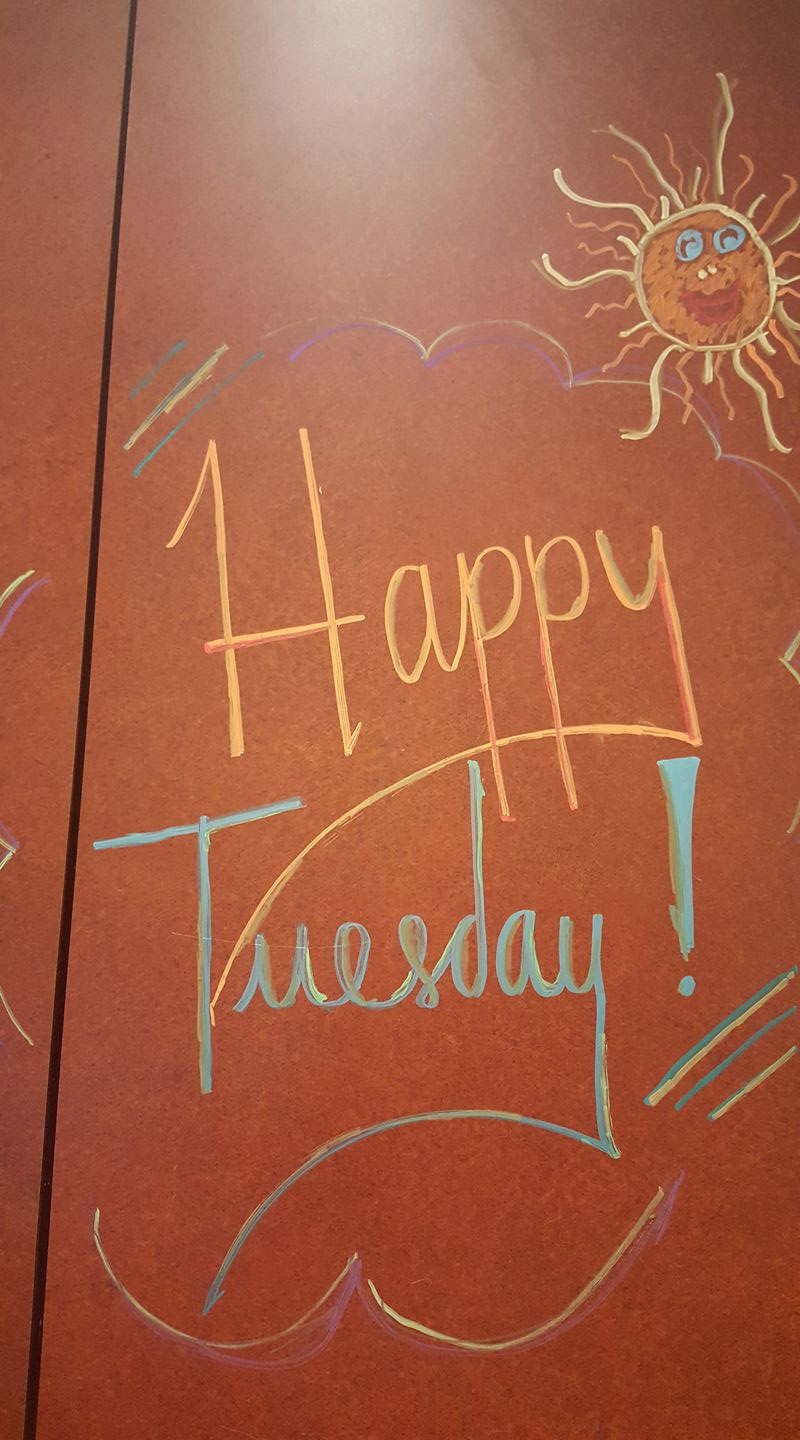 Happy
Tuesday!